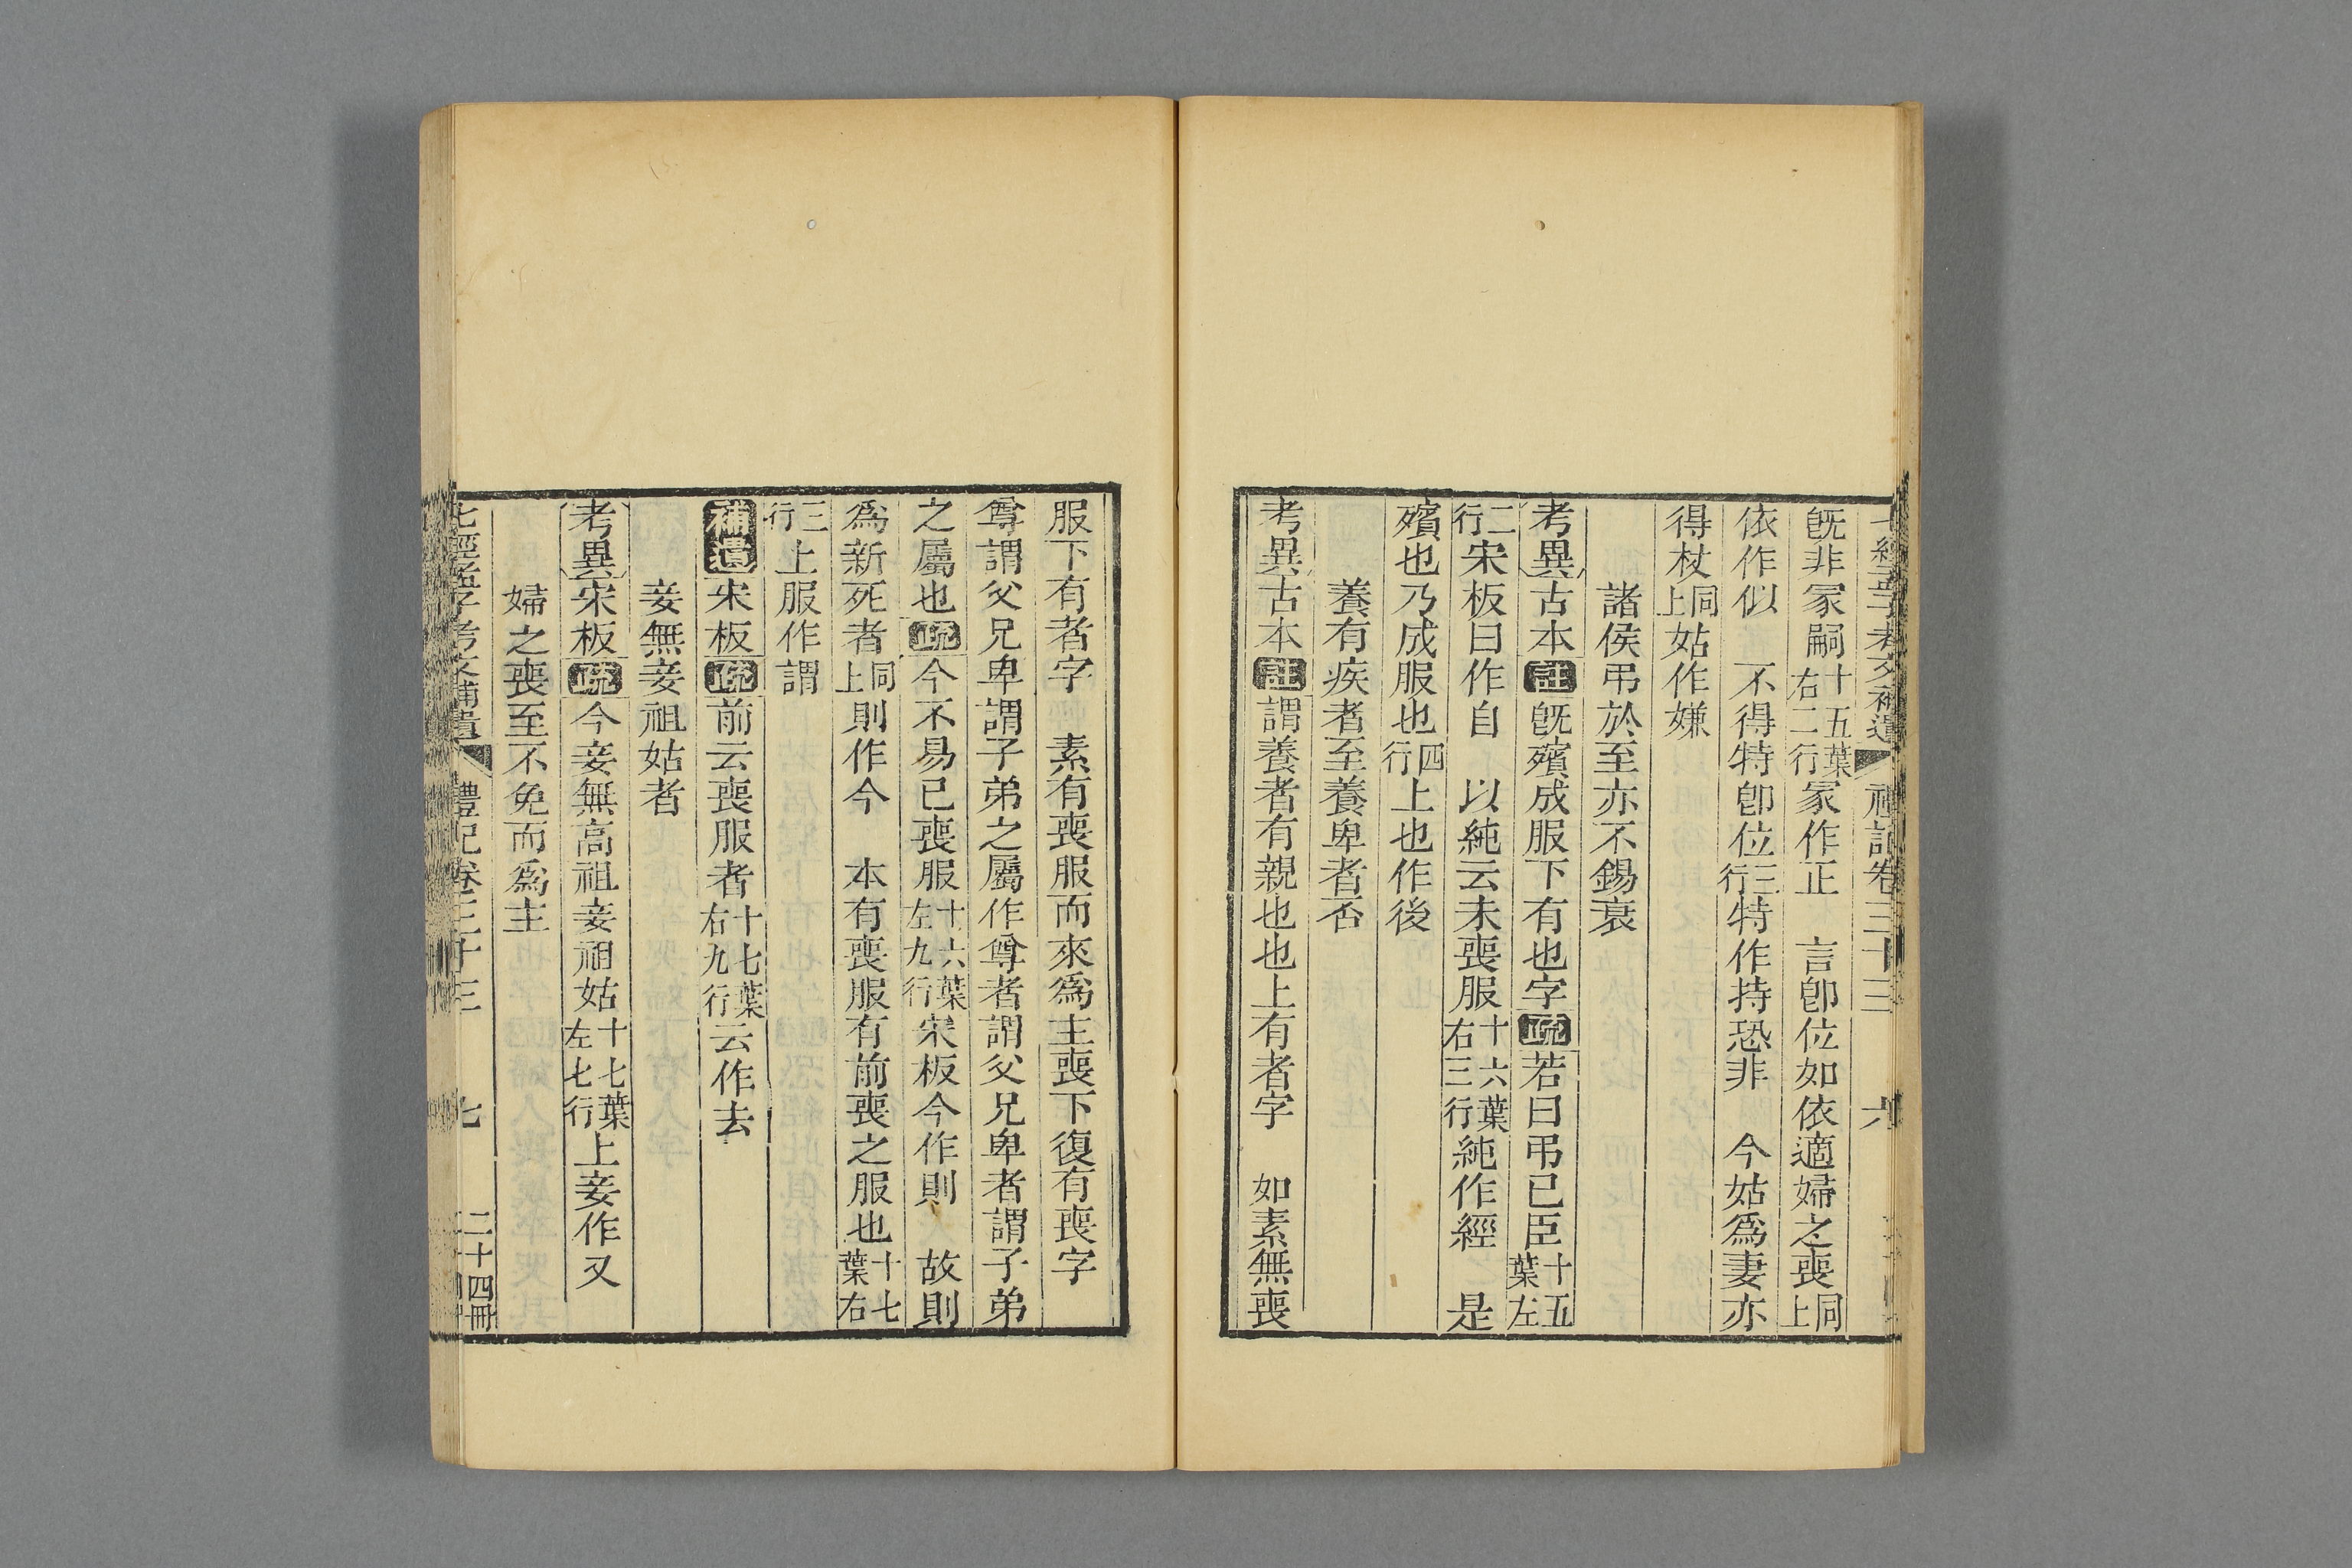 七經孟子考文補遺 禮記卷三十三 六
旣非冢嗣十五葉右二行冢作正 言卽位如依適婦之喪同上
依作似 不得特卽位三行特作持恐非 今姑爲妻亦
得杖同上姑作嫌
諸侯弔於至亦不錫衰
考異古本註旣殯成服下有也字疏若曰弔已臣十五葉左
二行宋板曰作自 以純云未喪服十六葉右三行純作經 是
殯也乃成服也四行上也作後
養有疾者至養卑者否
考異古本註謂養者有親也也上有者字 如素無喪
服下有者字 素有喪服而來爲主喪下復有喪字
尊謂父兄卑謂子弟之屬作尊者謂父兄卑者謂子弟
之屬也疏今不易已喪服十六葉左九行宋板今作則 故則
爲新死者同上則作今 本有喪服有前喪之服也十七葉右
三行上服作謂
補遺宋板疏前云喪服者十七葉右九行云作去
妾無妾祖姑者
考異宋板疏今妾無高祖妾祖姑十七葉左七行上妾作又
婦之喪至不免而爲主
七經孟子考文補遺 禮記卷三十三 七 二十四冊